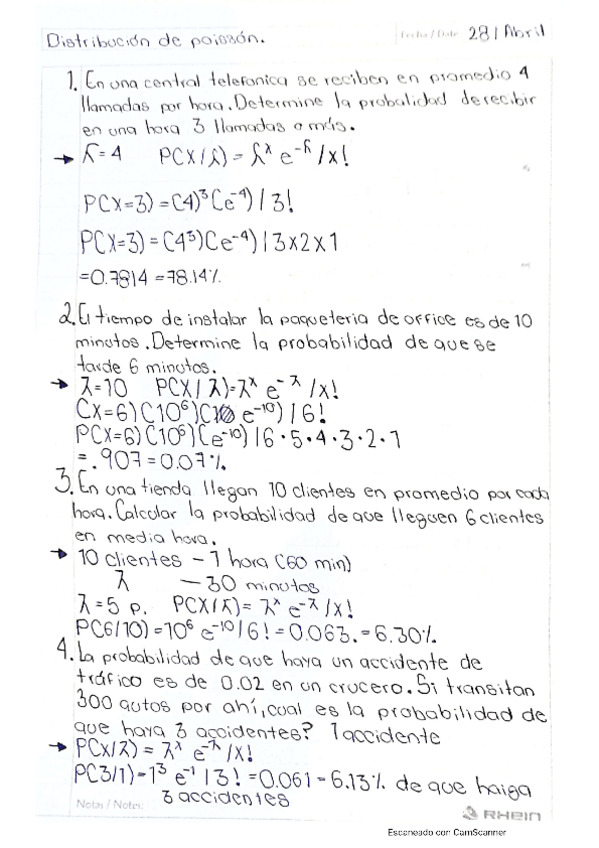 Distribución de poisson. Fecha / Date 28 | Abril
1. En una central telefonica se reciben en promedio 4
llamadas por hora. Determine la probalidad de recibir
en una hora 3 llamadas o más.
→ λ = 4 P(X/λ) = λˣ e⁻λ /x!
P(X=3) = (4)³ (e⁻⁴) / 3!
P(X=3) = (4³)(e⁻⁴) / 3x2x1
=0.7814 = 78.14%
2. El tiempo de instalar la paqueteria de office es de 10
minutos. Determine la probabilidad de que se
tarde 6 minutos.
→ λ=10 P(X/λ)=λˣ e⁻λ /x!
(X=6)(10⁶)( e⁻¹⁰) / 6!
P(X=6)(10⁶)(e⁻¹⁰) / 6·5·4·3·2·1
= .907 = 0.07%
3. En una tienda llegan 10 clientes en promedio por cada
hora. Calcular la probabilidad de que lleguen 6 clientes
en media hora.
→ 10 clientes – 1 hora (60 min)
λ – 30 minutos
λ = 5 p. P(X/λ) = λˣ e⁻λ /x!
P(6/10) = 10⁶ e⁻¹⁰ / 6! = 0.063. = 6.30%
4. La probabilidad de que haya un accidente de
tráfico es de 0.02 en un crucero. Si transitan
300 autos por ahí, cual es la probabilidad de
que haya 3 accidentes? 1 accidente
→ P(x/λ) = λˣ e⁻λ /x!
P(3/1) = 1³ e⁻¹ / 3! = 0.061 = 6.13% de que haiga
3 accidentes
Notas / Notes:
RHEIN
Escaneado con CamScanner